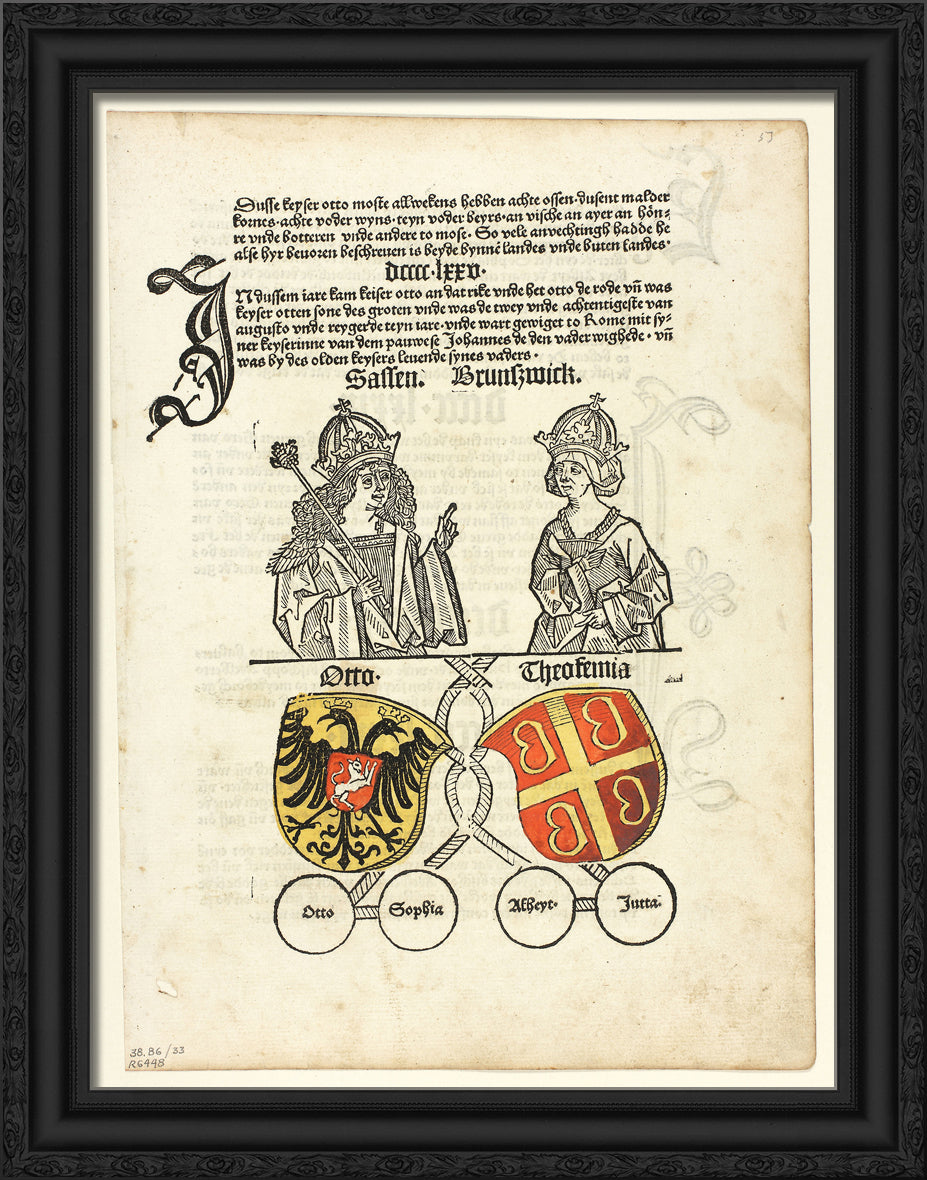 53
Dusse keyser otto moste allwekens hebben achte ossen·dusent malder
kornes·achte voder wyns·teyn voder beyrs·an vische an ayer an hön⸗
re vnde botteren vnde andere to mose· So vele anvechtingh hadde he
alse hyr beuoren beschreuen is beyde bynnē landes vnde buten landes·
dcccc·lxxv·
IN dussem iare kam keiser otto an dat rike vnde het otto de rode vn̄ was
keyser otten sone des groten vnde was de twey vnde achtentigeste van
augusto vnde reygerde teyn iare·vnde wart gewiget to Rome mit sy⸗
ner keyserinne van dem pauwese Johannes de den vader wighede· vn̄
was by des olden keysers leuende synes vaders·
Sassen. Brunszwick.
Otto· Theofemia
Otto Sophia Alheyt· Jutta·
38.86/33
R6448